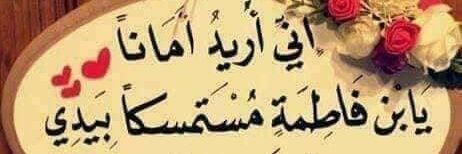 إِنيّ أُرِيدُ أمَاناً
يَابْن فَاطِمَةٍ مُسْتَمسكاً بِيَدِيِ